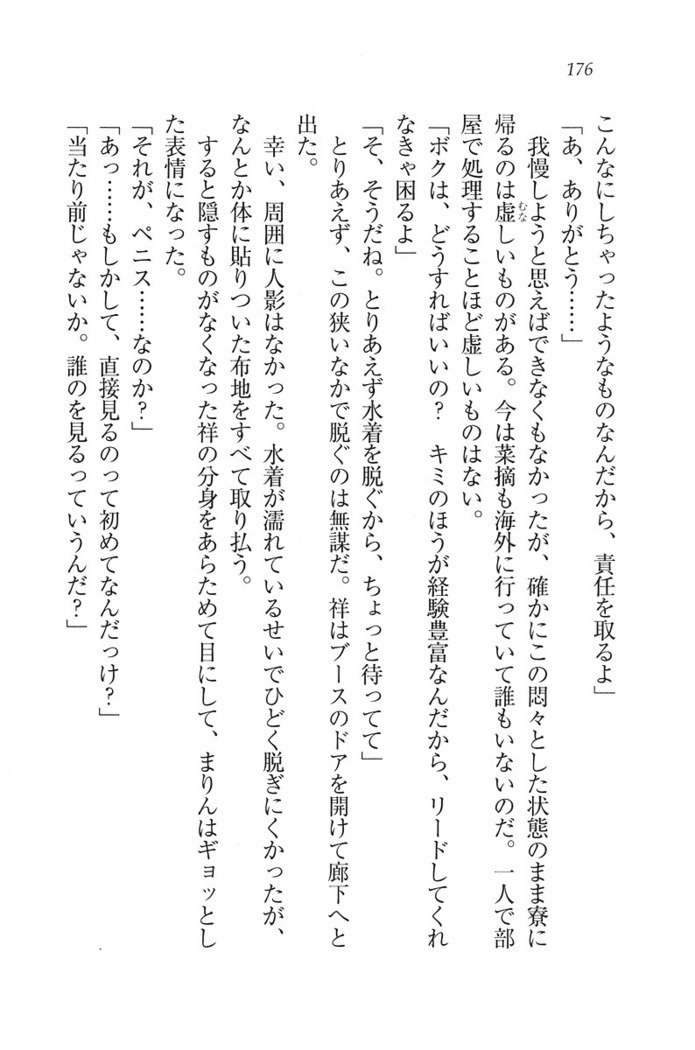 176
こんなにしちゃったようなものなんだから、責任を取るよ」
「あ、ありがとう……」
我慢しようと思えばできなくもなかったが、確かにこの悶々とした状態のまま寮に
帰るのは虚しいものがある。今は菜摘も海外に行っていて誰もいないのだ。一人で部
むな
屋で処理することほど虚しいものはない。
「ボクは、どうすればいいの？　キミのほうが経験豊富なんだから、リードしてくれ
なきゃ困るよ」
「そ、そうだね。とりあえず水着を脱ぐから、ちょっと待ってて」
とりあえず、この狭いなかで脱ぐのは無謀だ。祥はブースのドアを開けて廊下へと
出た。
幸い、周囲に人影はなかった。水着が濡れているせいでひどく脱ぎにくかったが、
なんとか体に貼りついた布地をすべて取り払う。
すると隠すものがなくなった祥の分身をあらためて目にして、まりんはギョッとし
た表情になった。
「それが、ペニス……なのか？」
「あっ……もしかして、直接見るのって初めてなんだっけ？」
「当たり前じゃないか。誰のを見るっていうんだ？」